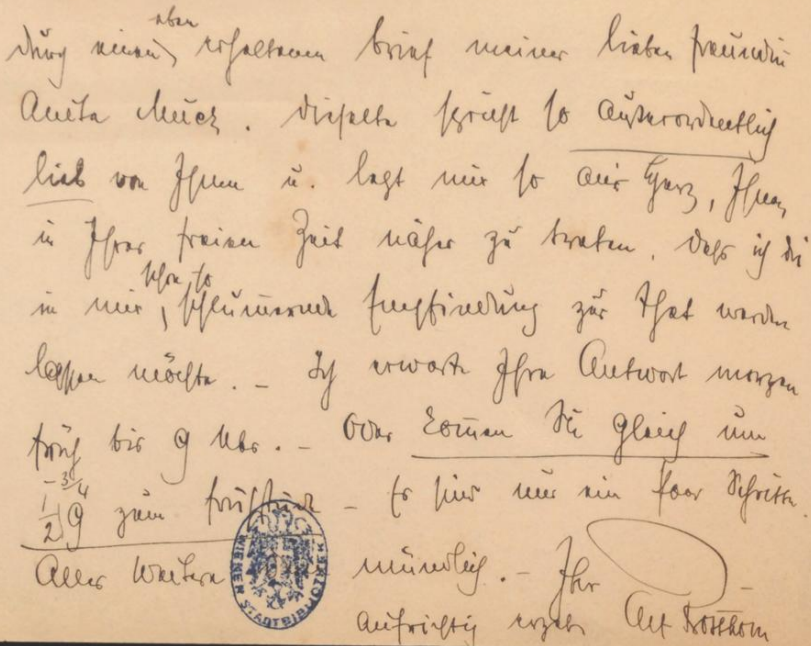 durch einen eben erhaltenen Brief meiner lieben Freundin
Anita Muck. Dieselbe spricht so außerordentlich
lieb von Ihnen u. legt mir so ans Herz, Ihnen
in Ihrer freien Zeit näher zu treten, daß ich die
in mir, schon so schlummernde Empfindung zur That werden
lassen möchte. – Ich erwarte Ihre Antwort morgen
früh bis 9 Uhr. – Oder komen Sie gleich um
1/2 9 - 3/4 zum Frühstück – Es sind nur ein paar Schritte.
Alles Weitere mündlich. – Ihr
aufrichtig ergeb.
WIENER STADTBIBLIOTHEK